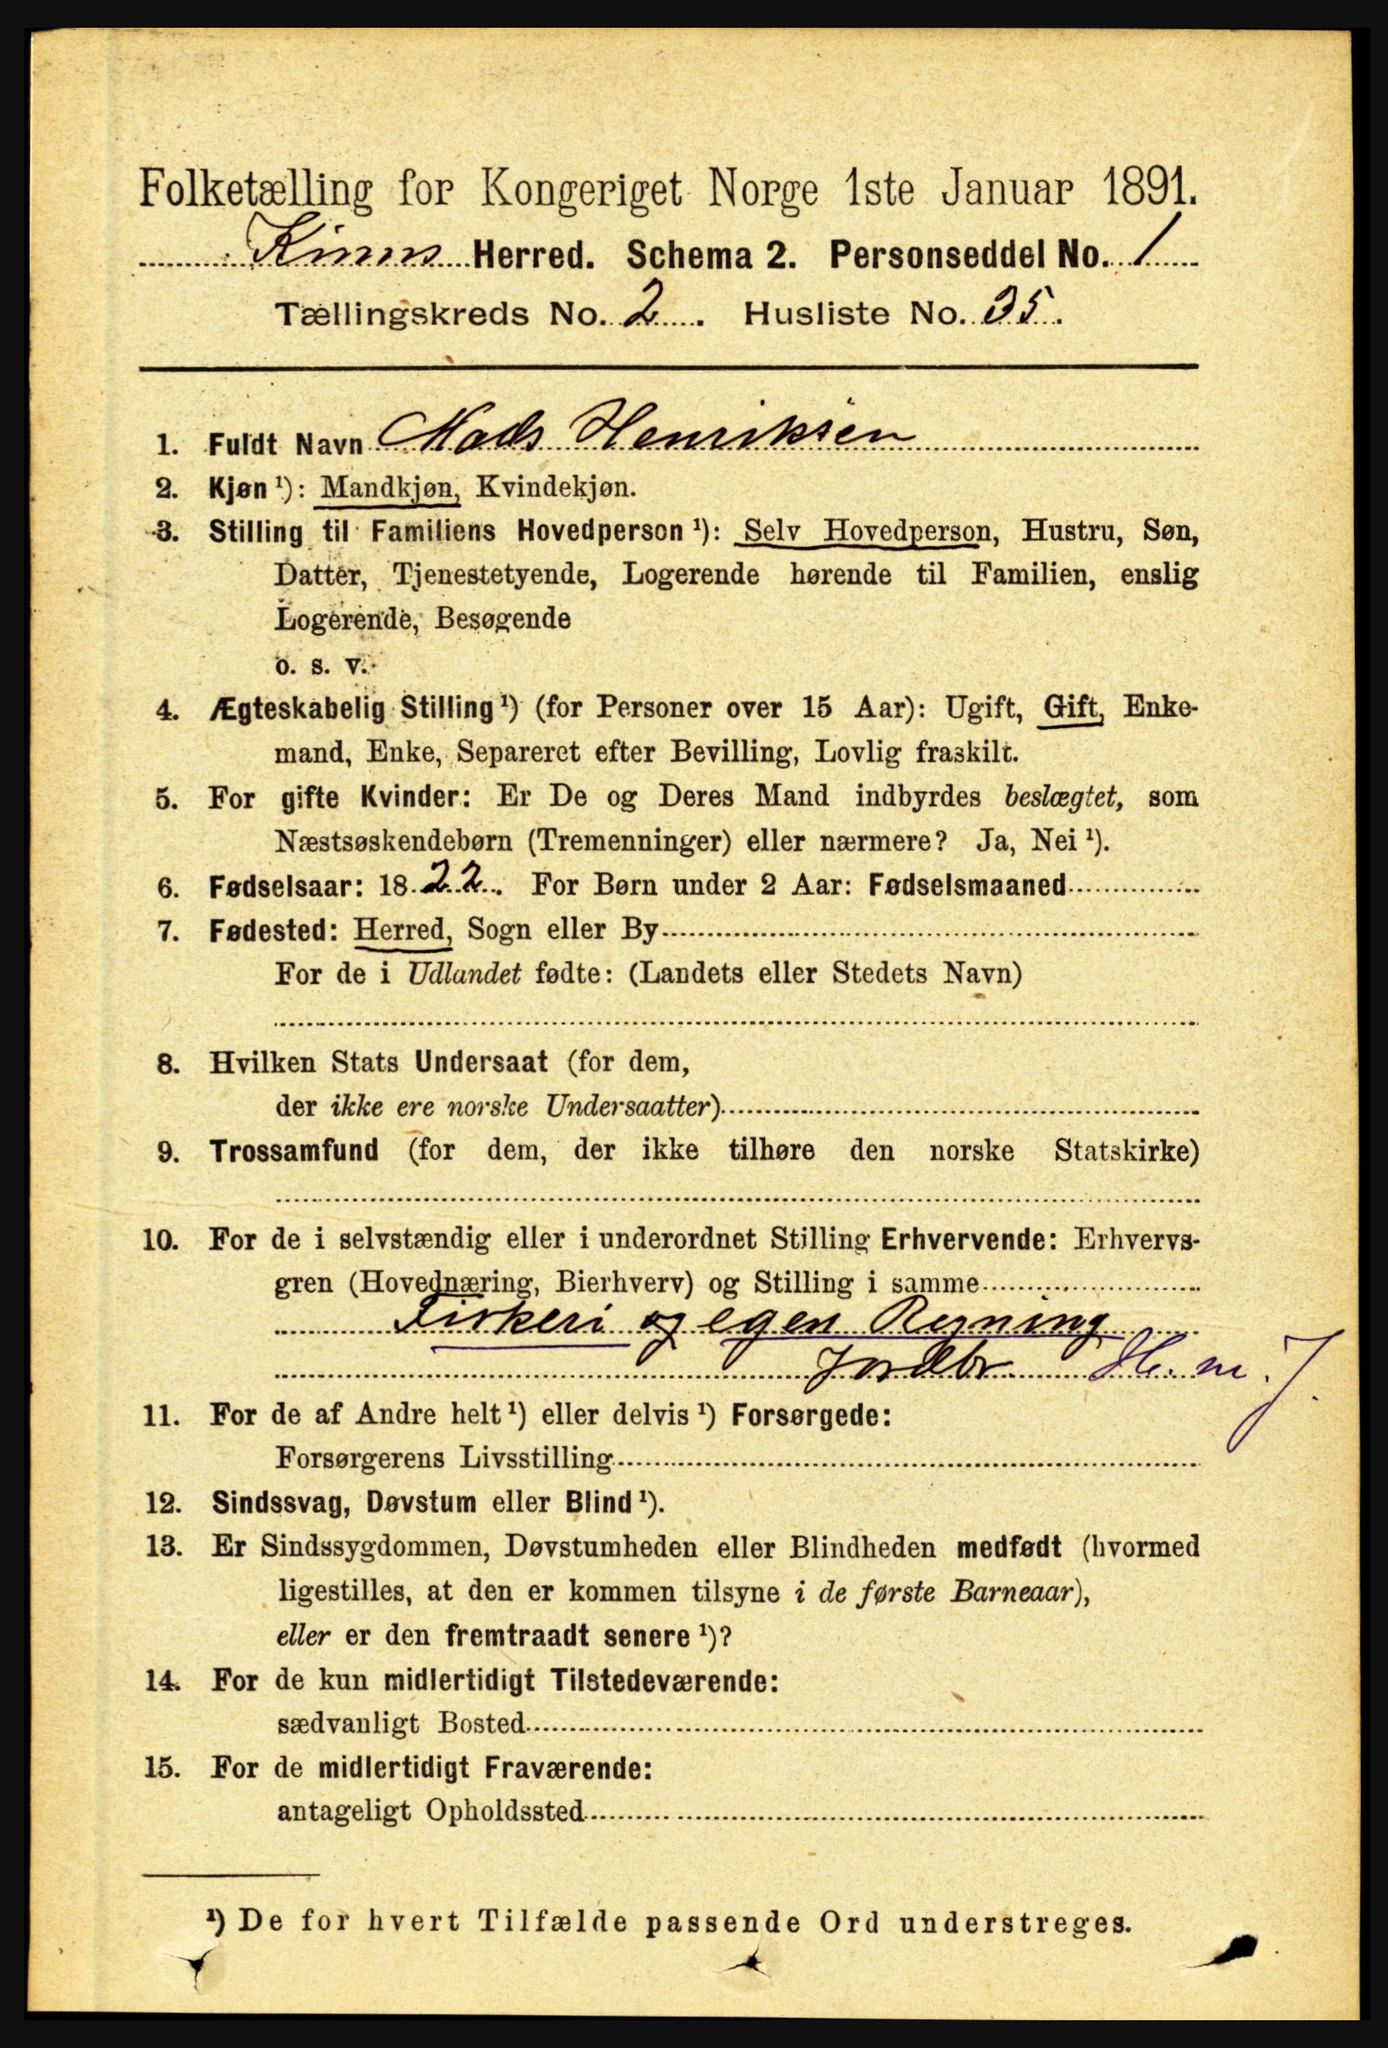 Folketælling for Kongeriget Norge 1ste Januar 1891.
Kinn Herred. Schema 2. Personseddel No. 1
Tællingskreds No. 2. Husliste No. 35.
1. Fuldt Navn Mads Henriksen
2. Kjøn ¹): Mandkjøn, Kvindekjøn.
3. Stilling til Familiens Hovedperson ¹): Selv Hovedperson, Hustru, Søn,
Datter, Tjenestetyende, Logerende hørende til Familien, enslig
Logerende, Besøgende
o. s. v.
4. Ægteskabelig Stilling ¹) (for Personer over 15 Aar): Ugift, Gift, Enke-
mand, Enke, Separeret efter Bevilling, Lovlig fraskilt.
5. For gifte Kvinder: Er De og Deres Mand indbyrdes beslægtet, som
Næstsøskendebørn (Tremenninger) eller nærmere? Ja, Nei ¹).
6. Fødselsaar: 1822. For Børn under 2 Aar: Fødselsmaaned
7. Fødested: Herred, Sogn eller By
For de i Udlandet fødte: (Landets eller Stedets Navn)
8. Hvilken Stats Undersaat (for dem,
der ikke ere norske Undersaatter)
9. Trossamfund (for dem, der ikke tilhøre den norske Statskirke)
10. For de i selvstændig eller i underordnet Stilling Erhvervende: Erhvervs-
gren (Hovednæring, Bierhverv) og Stilling i samme
Fiskeri og egen Regning
Jordbr. H. m. J.
11. For de af Andre helt ¹) eller delvis ¹) Forsørgede:
Forsørgerens Livsstilling
12. Sindssvag, Døvstum eller Blind ¹).
13. Er Sindssygdommen, Døvstumheden eller Blindheden medfødt (hvormed
ligestilles, at den er kommen tilsyne i de første Barneaar),
eller er den fremtraadt senere ¹)?
14. For de kun midlertidigt Tilstedeværende:
sædvanligt Bosted
15. For de midlertidigt Fraværende:
antageligt Opholdssted
¹) De for hvert Tilfælde passende Ord understreges.